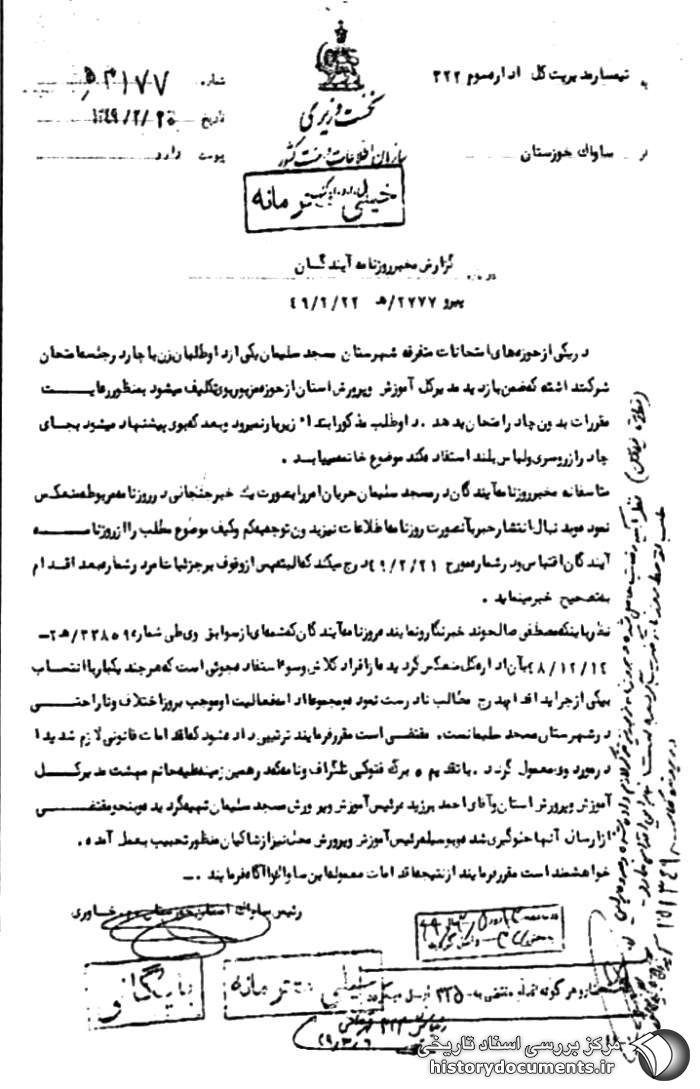 به تیمسار مدیریت کل اداره سوم ۳۲۲
شماره ۳۱۷۷/ه
نخست وزیری
تاریخ ۱۳۴۹/۲/۲۵
سازمان اطلاعات و امنیت کشور
از ساواک خوزستان
پیوست دارد
خیلی محرمانه
درباره گزارش مخبر روزنامه آیندگان
پیرو ۲۷۷۷/ه ۴۹/۲/۲۲
در یکی از حوزه‌های امتحانات متفرقه شهرستان مسجد سلیمان یکی از داوطلبان زن با چادر در جلسه امتحان
شرکت داشته که ضمن بازدید مدیر کل آموزش و پرورش استان از حوزه مزبور بوی تکلیف میشود بمنظور رعایت
مقررات بدون چادر امتحان بدهد . داوطلب مذکور ابتدا زیر بار نمیرود و بعد که بوی پیشنهاد میشود بجای
چادر از روسری و لباس بلند استفاده کند موضوع خاتمه مییابد .
متاسفانه مخبر روزنامه آیندگان در مسجد سلیمان جریان امر را بصورت یک خبر جنجالی در روزنامه مربوطه منعکس
نموده و بدنبال انتشار خبر بآنصورت روزنامه اطلاعات نیز بدون توجه بکم و کیف موضوع مطلب را از روزنامه
آیندگان اقتباس و در شماره مورخ ۴۹/۲/۲۱ درج میکند که البته پس از وقوف بر جزئیات امر در شماره بعد اقدام
به تصحیح خبر مینماید .
نظر باینکه مصطفی صالحوند خبرنگار و نماینده روزنامه آیندگان که شمه‌ای از سوابق وی طی شماره ۲۳۸۵۹/ه۲-
۴۸/۱۲/۱۲ بآن اداره کل منعکس گردیده از افراد کلاش و سوء استفاده جوئی است که هر چند یکبار با انتساب
بیکی از جراید اقدام بدرج مطالب نادرست نموده و مجموعا ادامه فعالیت او موجب بروز اختلاف و ناراحتی
در شهرستان مسجد سلیمان است . مقتضی است مقرر فرمایند ترتیبی داده شود که اقدامات قانونی لازم شدیدا
در مورد وی معمول گردد . با تقدیم ۵ برگ فتوکپی تلگراف و نامه که در همین زمینه علیه خانم بهشت مدیر کل
آموزش و پرورش استان و آقای احمد برزیده رئیس آموزش و پرورش مسجد سلیمان تهیه گردیده و بنحو مقتضی
از ارسال آنها جلوگیری شده و بوسیله رئیس آموزش و پرورش محل نیز از شاکیان منظور تحبیب بعمل آمده .
خواهشمند است مقرر فرمایند از نتیجه اقدامات معموله این ساواک را آگاه فرمایند .
رئیس ساواک استان خوزستان
بایگانی
خیلی محرمانه
۴۹/۳/۶
مرکز بررسی اسناد تاریخی
historydocuments.ir